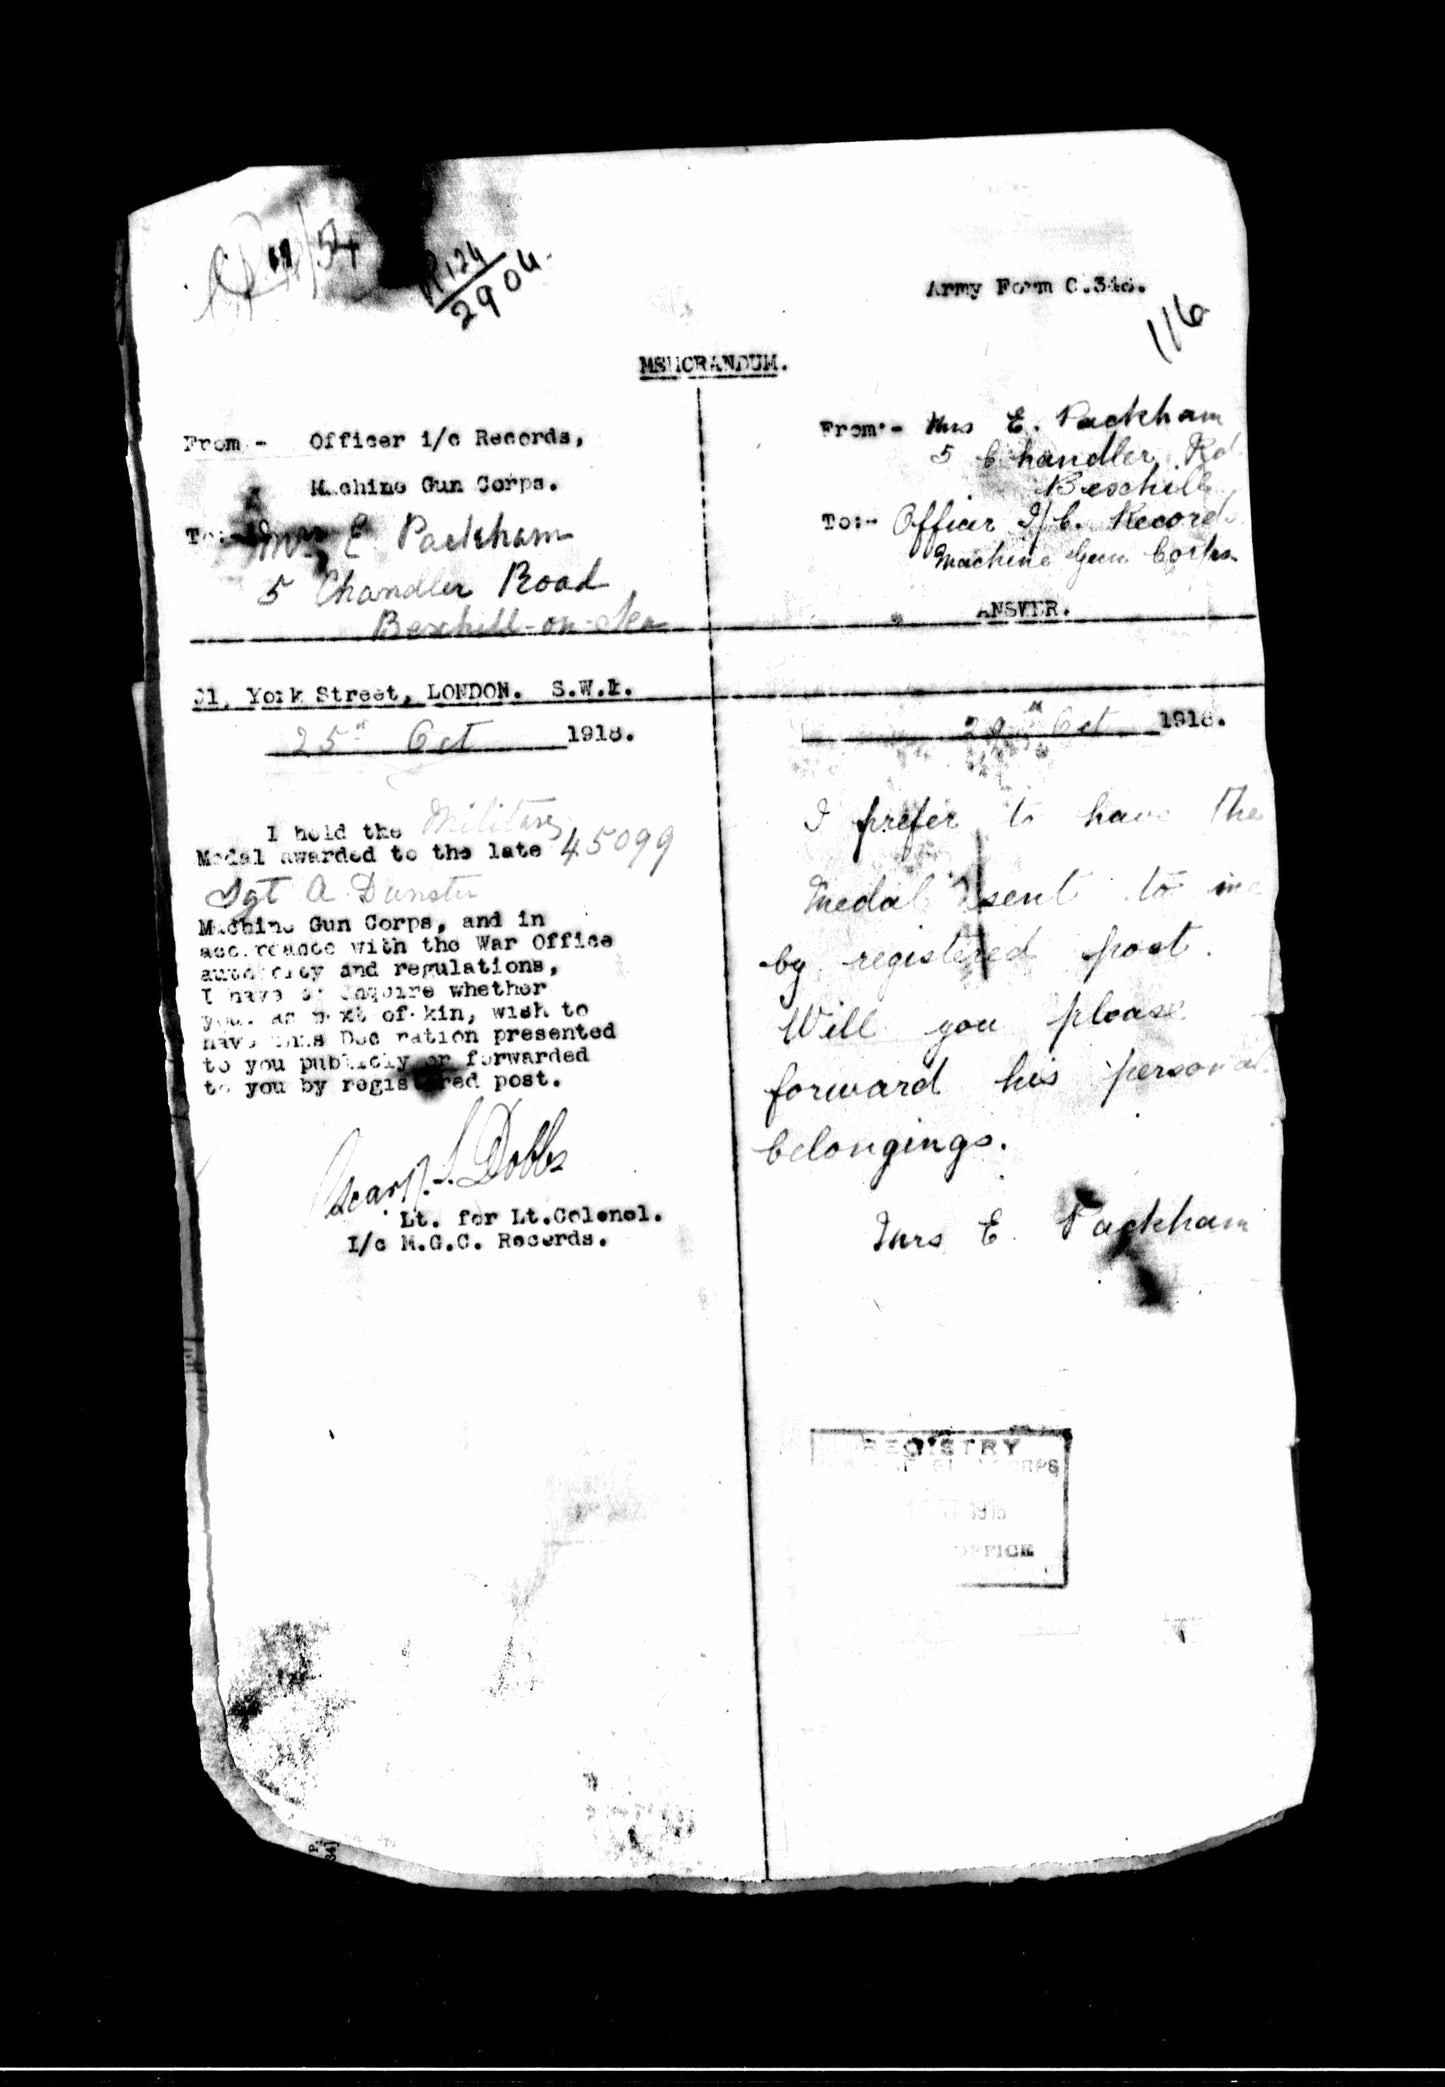 R 124
2904
Army Form C.348.
116
MEMORANDUM.
From - Officer i/c Records,
Machine Gun Corps.
To:- Mrs E Packham
5 Chandler Road
Bexhill-on-Sea
From:- Mrs E. Packham
5 Chandler Rd
Bexhill
To:- Officer I/C. Records
Machine Gun Corps
ANSWER.
91, York Street, LONDON. S.W.1.
25th Oct 1918.
I hold the Military
Medal awarded to the late 45099
Sgt A Dunster
Machine Gun Corps, and in
accordance with the War Office
authority and regulations,
I have to inquire whether
you, as next of kin, wish to
have this Decoration presented
to you publicly or forwarded
to you by registered post.
Oscar S. Dobbs
Lt. for Lt.Colonel.
I/c M.G.C. Records.
29th Oct 1918.
I prefer to have the
Medal sent to me
by registered post.
Will you please
forward his personal
belongings.
Mrs E. Packham
REGISTRY
GUN CORPS
OFFICE